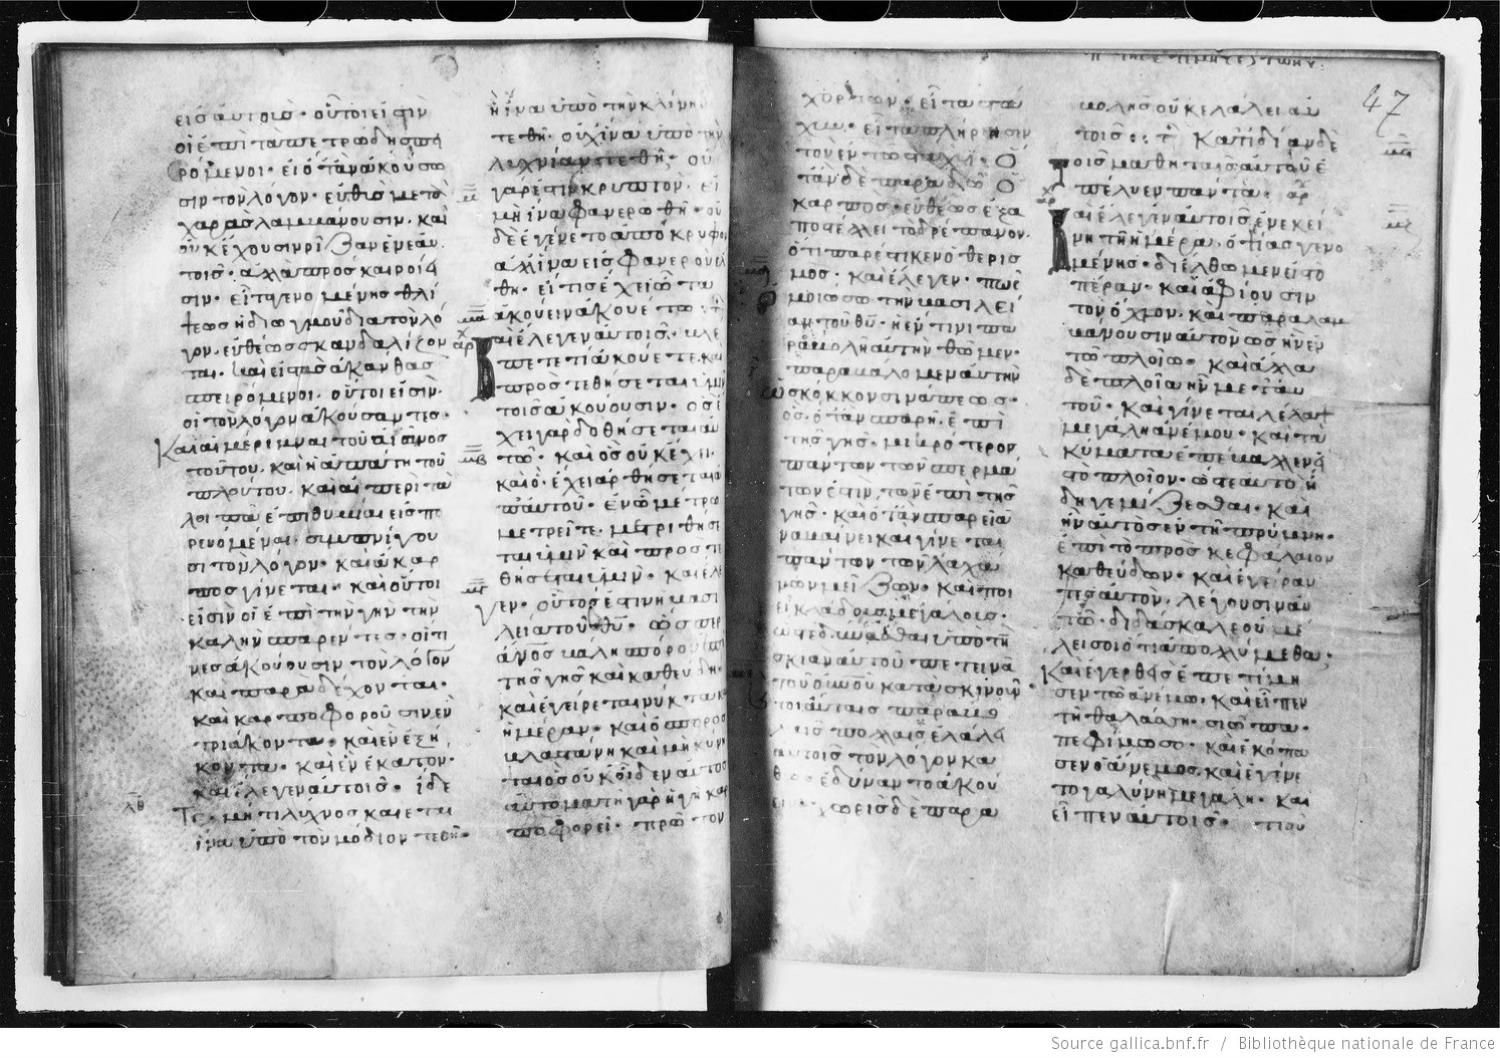 εἰς αὐτούς· οὗτοι εἰσὶν
οἱ ἐπὶ τὰ πετρώδη σπει
ρόμενοι· οἱ ὅταν ἀκούσω
σιν τὸν λόγον· εὐθὺς μετὰ
χαρᾶς λαμβάνουσιν· καὶ
οὐκ ἔχουσιν ρίζαν ἐν ἑαυ
τοῖς· ἀλλὰ πρόσκαιροί εἰ
σιν· εἶτα γενομένης θλί
ψεως ἢ διωγμοῦ διὰ τὸν λό
γον· εὐθέως σκανδαλίζον
ται· καὶ εἰς τὰς ἀκάνθας
σπειρόμενοι· οὗτοι εἰσὶν
οἱ τὸν λόγον ἀκούσαντες·
Καὶ αἱ μέριμναι τοῦ αἰῶνος
τούτου· καὶ ἡ ἀπάτη τοῦ
πλούτου· καὶ αἱ περὶ τὰ
λοιπὰ ἐπιθυμίαι εἰσπο
ρευόμεναι· συμπνίγου
σι τὸν λόγον· καὶ ἄκαρ
πος γίνεται· καὶ οὗτοι
εἰσὶν οἱ ἐπὶ τὴν γῆν τὴν
καλὴν σπαρέντες· οἵτι
νες ἀκούουσιν τὸν λόγον
καὶ παραδέχονται·
καὶ καρποφοροῦσιν ἐν
τριάκοντα· καὶ ἐν ἑξή
κοντα· καὶ ἐν ἑκατόν·
καὶ ἔλεγεν αὐτοῖς· ἴδε
λθ
Τε· μήτι λύχνος καίεται
ἵνα ὑπὸ τὸν μόδιον τεθῇ·
ἢ ἵνα ὑπὸ τὴν κλίνην
τεθῇ· οὐχ ἵνα ὑπὸ τὴν
λυχνίαν τεθῇ· οὐ
γάρ ἐστιν κρυπτὸν· εἰ
μὴ ἵνα φανερωθῇ· οὐ
δὲ ἐγένετο ἀπόκρυφον
ἀλλ ἵνα εἰς φανερὸν ἔλ
θῃ· εἴ τις ἔχει ὦτα
ἀκούειν ἀκουέτω·
Καὶ ἔλεγεν αὐτοῖς· βλέ
πετε τί ἀκούετε· καὶ
προστεθήσεται ὑμῖν
τοῖς ἀκούουσιν· ὃς
ἔχει γὰρ δοθήσεται αὐ
τῷ· καὶ ὃς οὐκ ἔχει·
καὶ ὃ ἔχει ἀρθήσεται ἀ
π αὐτοῦ· ἐν ᾧ μέτρῳ
μετρεῖτε· μετρηθήσε
ται ὑμῖν καὶ προστε
θήσεται ὑμῖν· καὶ ἔλε
γεν· οὕτως ἐστὶν ἡ βασι
λεία τοῦ θυ· ὥσπερ
ἄνος βάλῃ σπόρον ἐπὶ
τῆς γῆς καὶ καθεύδῃ·
καὶ ἐγείρεται νύκτα καὶ
ἡμέραν· καὶ ὁ σπόρος
βλαστάνῃ καὶ μηκύνη
ται ὡς οὐκ οἶδεν αὐτός
αὐτομάτη γὰρ ἡ γῆ καρ
ποφορεῖ· πρῶτον
47
χόρτον· εἶτα στά
χυν· εἶτα πλήρη σῖ
τον ἐν τῷ στάχυϊ· ὅ
ταν δὲ παραδῷ ὁ
καρπός· εὐθέως ἐξα
ποστέλλει τὸ δρέπανον·
ὅτι παρέστηκεν ὁ θερισ
μός· καὶ ἔλεγεν· πῶς
ὁμοιώσω τὴν βασιλεί
αν τοῦ θυ· ἢ ἐν τίνι πα
ραβολῇ αὐτὴν θῶμεν·
παραβάλομεν αὐτὴν
ὡς κόκκον σινάπεως·
ὃς ὅταν σπαρῇ ἐπὶ
τῆς γῆς· μικρότερον
πάντων τῶν σπερμά
των ἐστὶν τῶν ἐπὶ τῆς
γῆς· καὶ ὅταν σπαρεῖ ἀ
ναβαίνει καὶ γίνεται
πάντων τῶν λαχά
νων μείζων· καὶ ποι
εῖ κλάδους μεγάλους·
ὑπὸ τὴν
σκιὰν αὐτοῦ πετεινὰ
τοῦ οὐνοῦ κατασκηνοῦν·
τοιαύταις παραβο
λαῖς πολλαῖς ἐλάλει
αὐτοῖς τὸν λόγον κα
θὼς ἐδύναντο ἀκού
ειν· χωρεὶς δὲ παρα
βολῆς οὐκ ἐλάλει αὐ
τοῖς· Κατιδίαν δὲ
τοῖς μαθηταῖς αὐτοῦ ἐ
πέλυεν πάντα·
Καὶ ἔλεγεν αὐτοῖς ἐν ἐκεί
νῃ τῇ ἡμέρᾳ· ὀψίας γενο
μένης· διέλθωμεν εἰς τὸ
πέραν· καὶ ἀφίουσιν
τὸν ὄχλον· καὶ παραλαμ
βάνουσιν αὐτὸν ὡς ἦν ἐν
τῷ πλοίῳ· καὶ ἄλλα
δὲ πλοῖα ἦν μετ αὐ
τοῦ· Καὶ γίνεται λέλαψ
μεγάλη ἀνέμου· καὶ τὰ
κύματα ἐπέβαλλεν εἰς
τὸ πλοῖον· ὥστε αὐτὸ ἤ
δη γεμίζεσθαι· καὶ
ἦν αὐτὸς ἐν τῇ πρύμνῃ·
ἐπὶ τὸ προσκεφάλαιον
καθεύδων· καὶ ἐγείραν
τες αὐτὸν λέγουσιν αὐ
τῷ· διδάσκαλε οὐ μέ
λει σοι ὅτι ἀπολλύμεθα·
Καὶ ἐγερθεὶς ἐπετίμη
σεν τῷ ἀνέμῳ· καὶ εἶπεν
τῇ θαλάσσῃ· σιώπα·
πεφίμωσο· καὶ ἐκόπα
σεν ὁ ἄνεμος· καὶ ἐγένε
το γαλήνη μεγάλη· καὶ
εἶπεν αὐτοῖς· τί οὕ
Source gallica.bnf.fr / Bibliothèque nationale de France